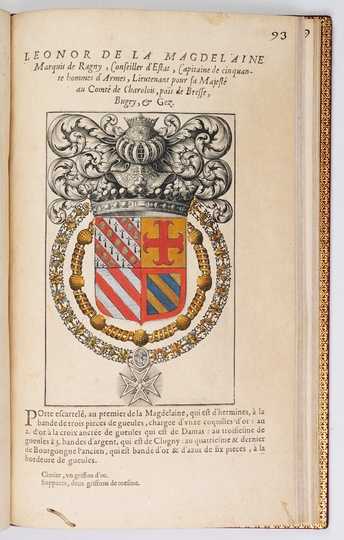 93
LEONOR DE LA MAGDELAINE
Marquis de Ragny, Conseiller d'Estat, Capitaine de cinquan-
te hommes d'Armes, Lieutenant pour sa Majesté
au Comté de Charolois, païs de Bresse,
Bugey, & Gez.
POrte escartelé, au premier de la Magdelaine, qui est d'hermines, à la
bande de trois pieces de gueules, chargée d'vnze coquilles d'or: au
2. d'or à la croix ancrée de gueules qui est de Damas: au troisiesme de
gueules à 3. bandes d'argent, qui est de Clugny: au quatriesme & dernier
de Bourgongne l'ancien, qui est bandé d'or & d'azur de six pieces, à la
bordeure de gueules.
Cimier, vn griffon d'or.
Supports, deux griffons de mesme.